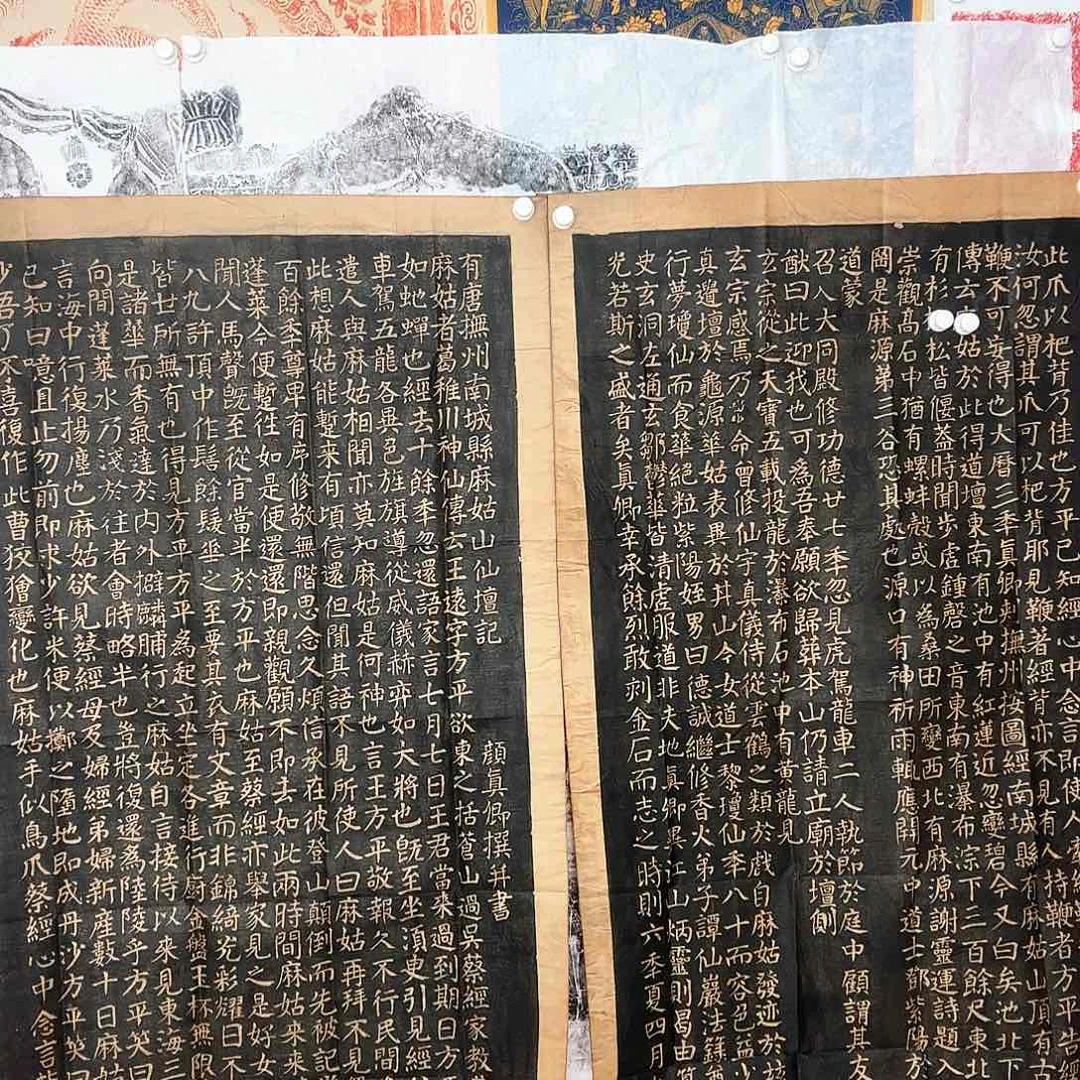 有唐撫州南城縣麻姑山仙壇記
顏真卿撰并書
麻姑者葛稚川神仙傳云王遠字方平欲東之括蒼山過吳蔡經家教
如虵蟬也經去十餘秊忽還語家言七月七日王君當來過到期日方
車駕五龍各異色旌旗導從威儀赫弈如大將也旣至坐須臾引見經
遣人與麻姑相聞亦莫知麻姑是何神也言王方平敬報久不行民間
此想麻姑能蹔来有頃信還但聞其語不見所使人曰麻姑再拜不見
百餘秊尊卑有序修敬無階思念久煩信承在彼登山顛倒而先被記
蓬萊今便蹔往如是便還還即親觀願不即去如此兩時間麻姑来来
聞人馬聲旣至從官當半於方平也麻姑至蔡經亦舉家見之是好女
八九許頂中作髻餘髮垂之至要其衣有文章而非錦綺光彩耀日不
皆世所無有也得見方平方平為起立坐定各進行厨金盤玉杯無限
是諸華而香氣達於内外擗麟脯行之麻姑自言接侍以来見東海三
向間蓬萊水乃淺於往者會時略半也豈將復還為陸陵乎方平笑曰
言海中行復揚塵也麻姑欲見蔡經母及婦經弟婦新産數十日麻姑
已知曰噫且止勿前即求少許米便以擲之墮地即成丹沙方平笑曰
少吾了不喜復作此曹狡獪變化也麻姑手似鳥爪蔡經心中念言
此爪以杷背乃佳也方平已知經心中念言即使人
汝何忽謂其爪可以杷背耶見鞭著經背亦不見有人持鞭者方平告經
鞭不可妄得也大曆三秊真卿刺撫州按圖經南城縣有麻姑山頂有古
傳云麻姑於此得道壇東南有池中有紅蓮近忽變碧今又白矣池北下
有杉松松皆偃蓋時聞步虚鍾磬之音東南有瀑布淙下三百餘尺東北
崇觀高石中猶有螺蚌殻或以為桑田所變西北有麻源謝靈運詩題入
岡是麻源第三谷恐其處也源口有神祈雨輒應開元中道士鄧紫陽於
道蒙召入大同殿修功德廿七秊忽見虎駕龍車二人執節於庭中顧謂其友
猷曰此迎我也可為吾奉願欲歸葬本山仍請立廟於壇側
玄宗從之天寶五載投龍於瀑布石池中有黃龍見
玄宗感焉乃命曾修仙宇真儀侍從雲鶴之類於戯自麻姑發迹於兹
真遺壇於龜源華姑表異於井山今女道士黎瓊仙秊八十而容色益少
行夢瓊仙而飡華絕粒紫陽姪男曰德誠繼修香火弟子譚仙巖法籙
史玄洞左通玄鄒鬱華皆清虚服道非夫地氣殊異江山炳靈則曷由
光若斯之盛者矣真卿幸承餘烈敢刻金石而志之時則六秊夏四月